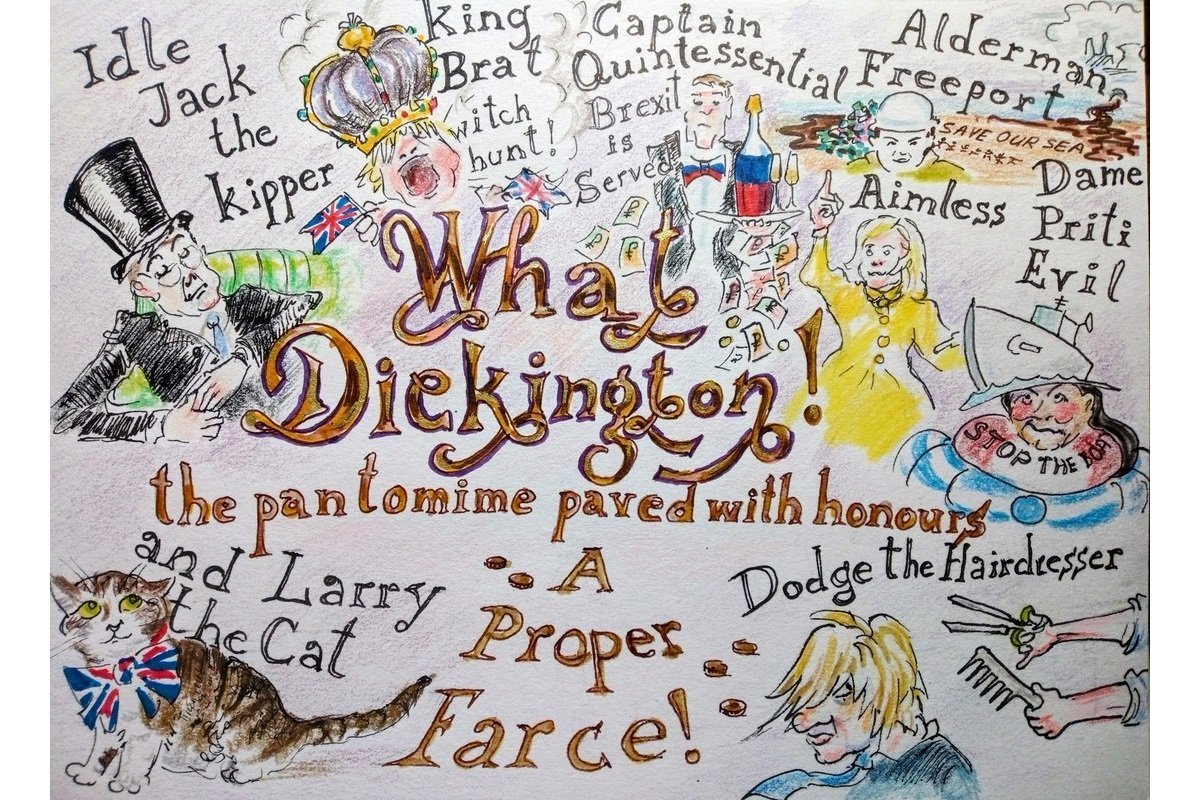 Idle
Jack
the
kipper
King
Brat
witch
hunt!
Captain
Quintessential
Brexit
is
Served
Alderman
Freeport
SAVE OUR SEA
Aimless
Dame
Priti
Evil
STOP THE BOAT
What
Dickington!
the pantomime paved with honours
and Larry
the Cat
A
Proper
Farce!
Dodge the Hairdresser